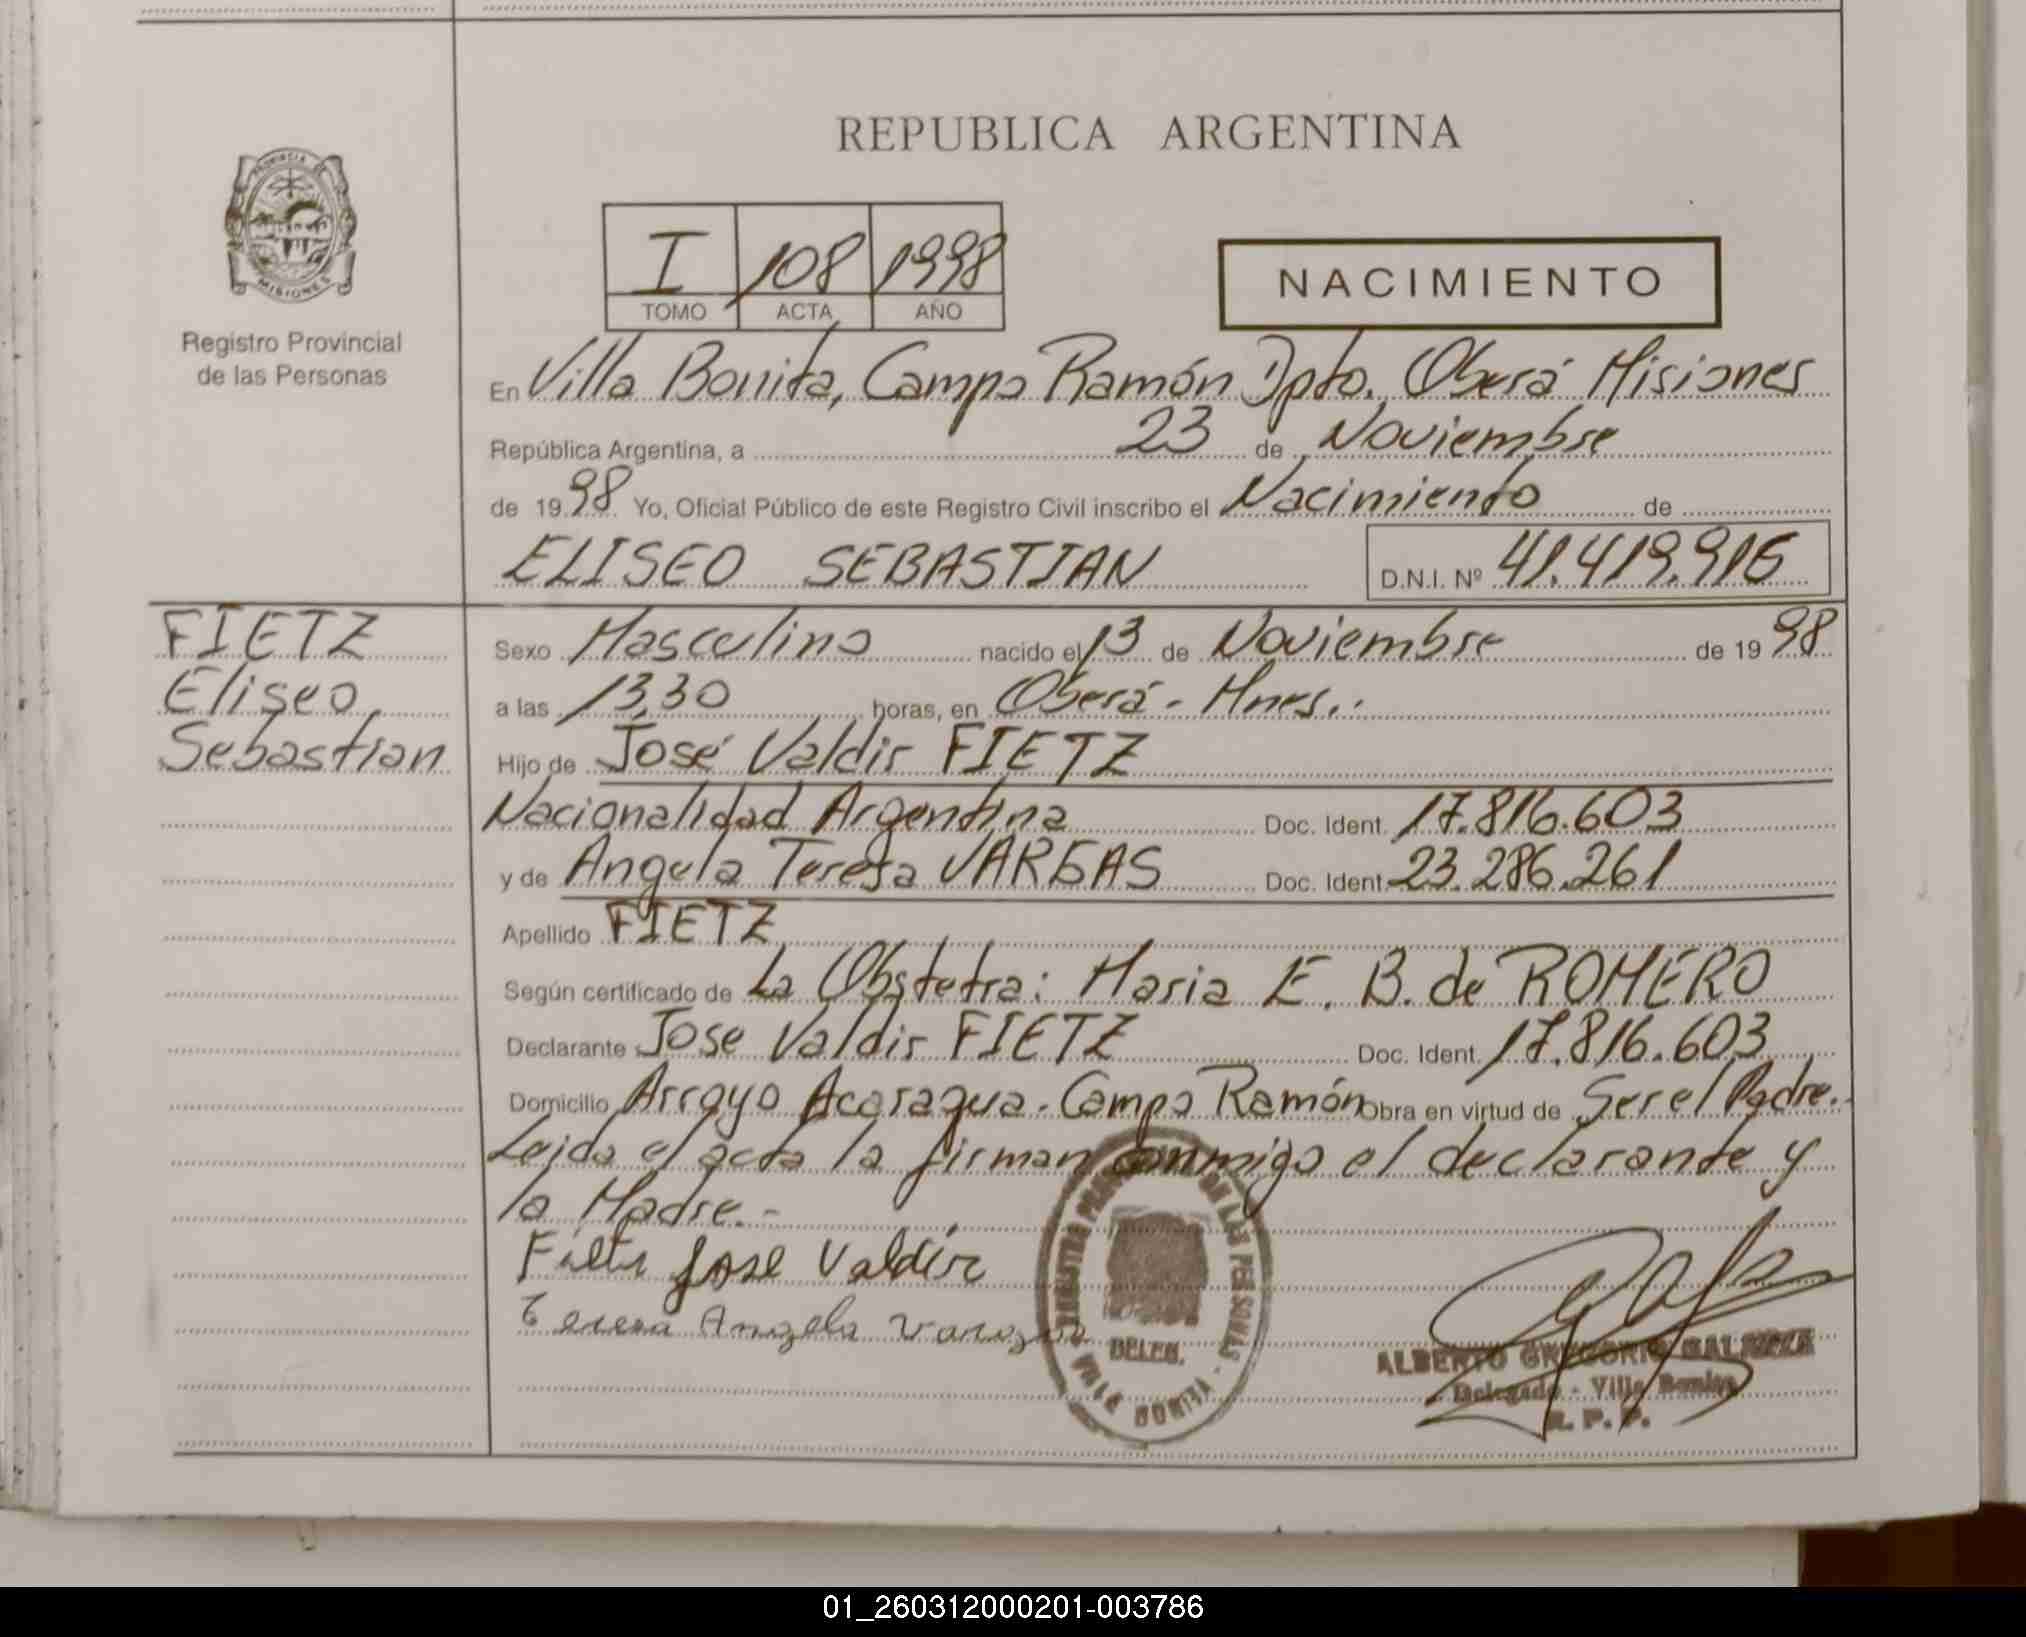 REPUBLICA ARGENTINA
PROVINCIA
MISIONES
Registro Provincial
de las Personas
I 108 1998
TOMO ACTA AÑO
NACIMIENTO
En Villa Bonita, Campo Ramón Dpto. Oberá Misiones
República Argentina, a 23 de Noviembre
de 19 98 Yo, Oficial Público de este Registro Civil inscribo el Nacimiento de
ELISEO SEBASTIAN D.N.I. Nº 41.419.916
FIETZ
Eliseo
Sebastian
Sexo Masculino nacido el 13 de Noviembre de 19 98
a las 13,30 horas, en Oberá - Mnes..
Hijo de José Valdir FIETZ
Nacionalidad Argentina Doc. Ident. 17.816.603
y de Angela Teresa VARGAS Doc. Ident. 23.286.261
Apellido FIETZ
Según certificado de La Obstetra: Maria E. B. de ROMERO
Declarante Jose Valdir FIETZ Doc. Ident. 17.816.603
Domicilio Arroyo Acaragua - Campo Ramón Obra en virtud de Ser el Padre.-
Leida el acta la firman conmigo el declarante y
la Madre.-
Jose Valdir
Angela
REGISTRO DE LAS PERSONAS
DELEG.
ALBERTO GREGORIO
Delegado - Villa Bonita
R. P. P.
01_260312000201-003786